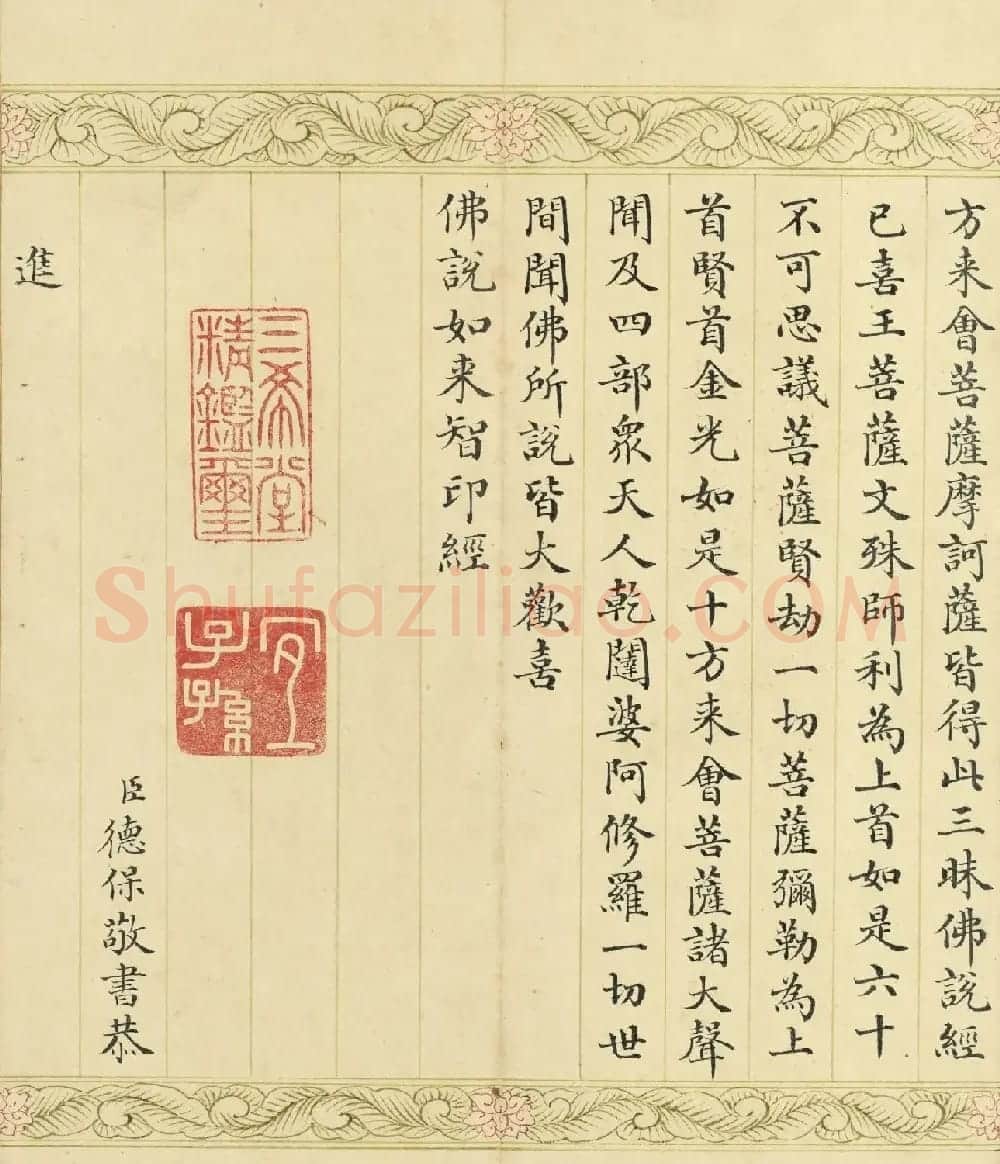 方来會菩薩摩訶薩皆得此三昧佛說經
已喜王菩薩文殊師利為上首如是六十
不可思議菩薩賢劫一切菩薩彌勒為上
首賢首金光如是十方来會菩薩諸大聲
聞及四部衆天人乾闥婆阿修羅一切世
間聞佛所說皆大歡喜
佛說如来智印經
三希堂
精鑑璽
宜
子孫
臣德保敬書恭
進
Shufaziliao.COM